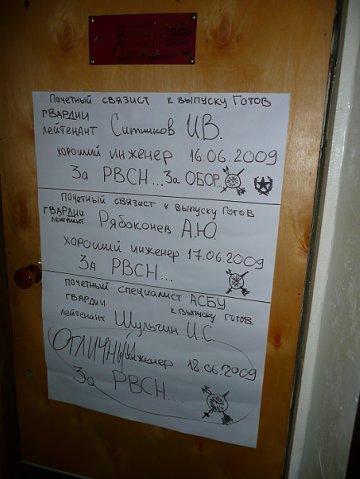 Почетный связист к выпуску Готов
гвардии
лейтенант Ситников И.В.
хороший инженер 16.06.2009
За РВСН... За ОБОР.
Почетный связист к выпуску Готов
гвардии
лейтенант Рябоконев А.Ю.
хороший инженер 17.06.2009
За РВСН...
Почетный специалист АСБУ
гвардии к выпуску готов.
лейтенант Шульгин И.С.
ОТЛИЧНЫЙ инженер 18.06.2009
За РВСН...